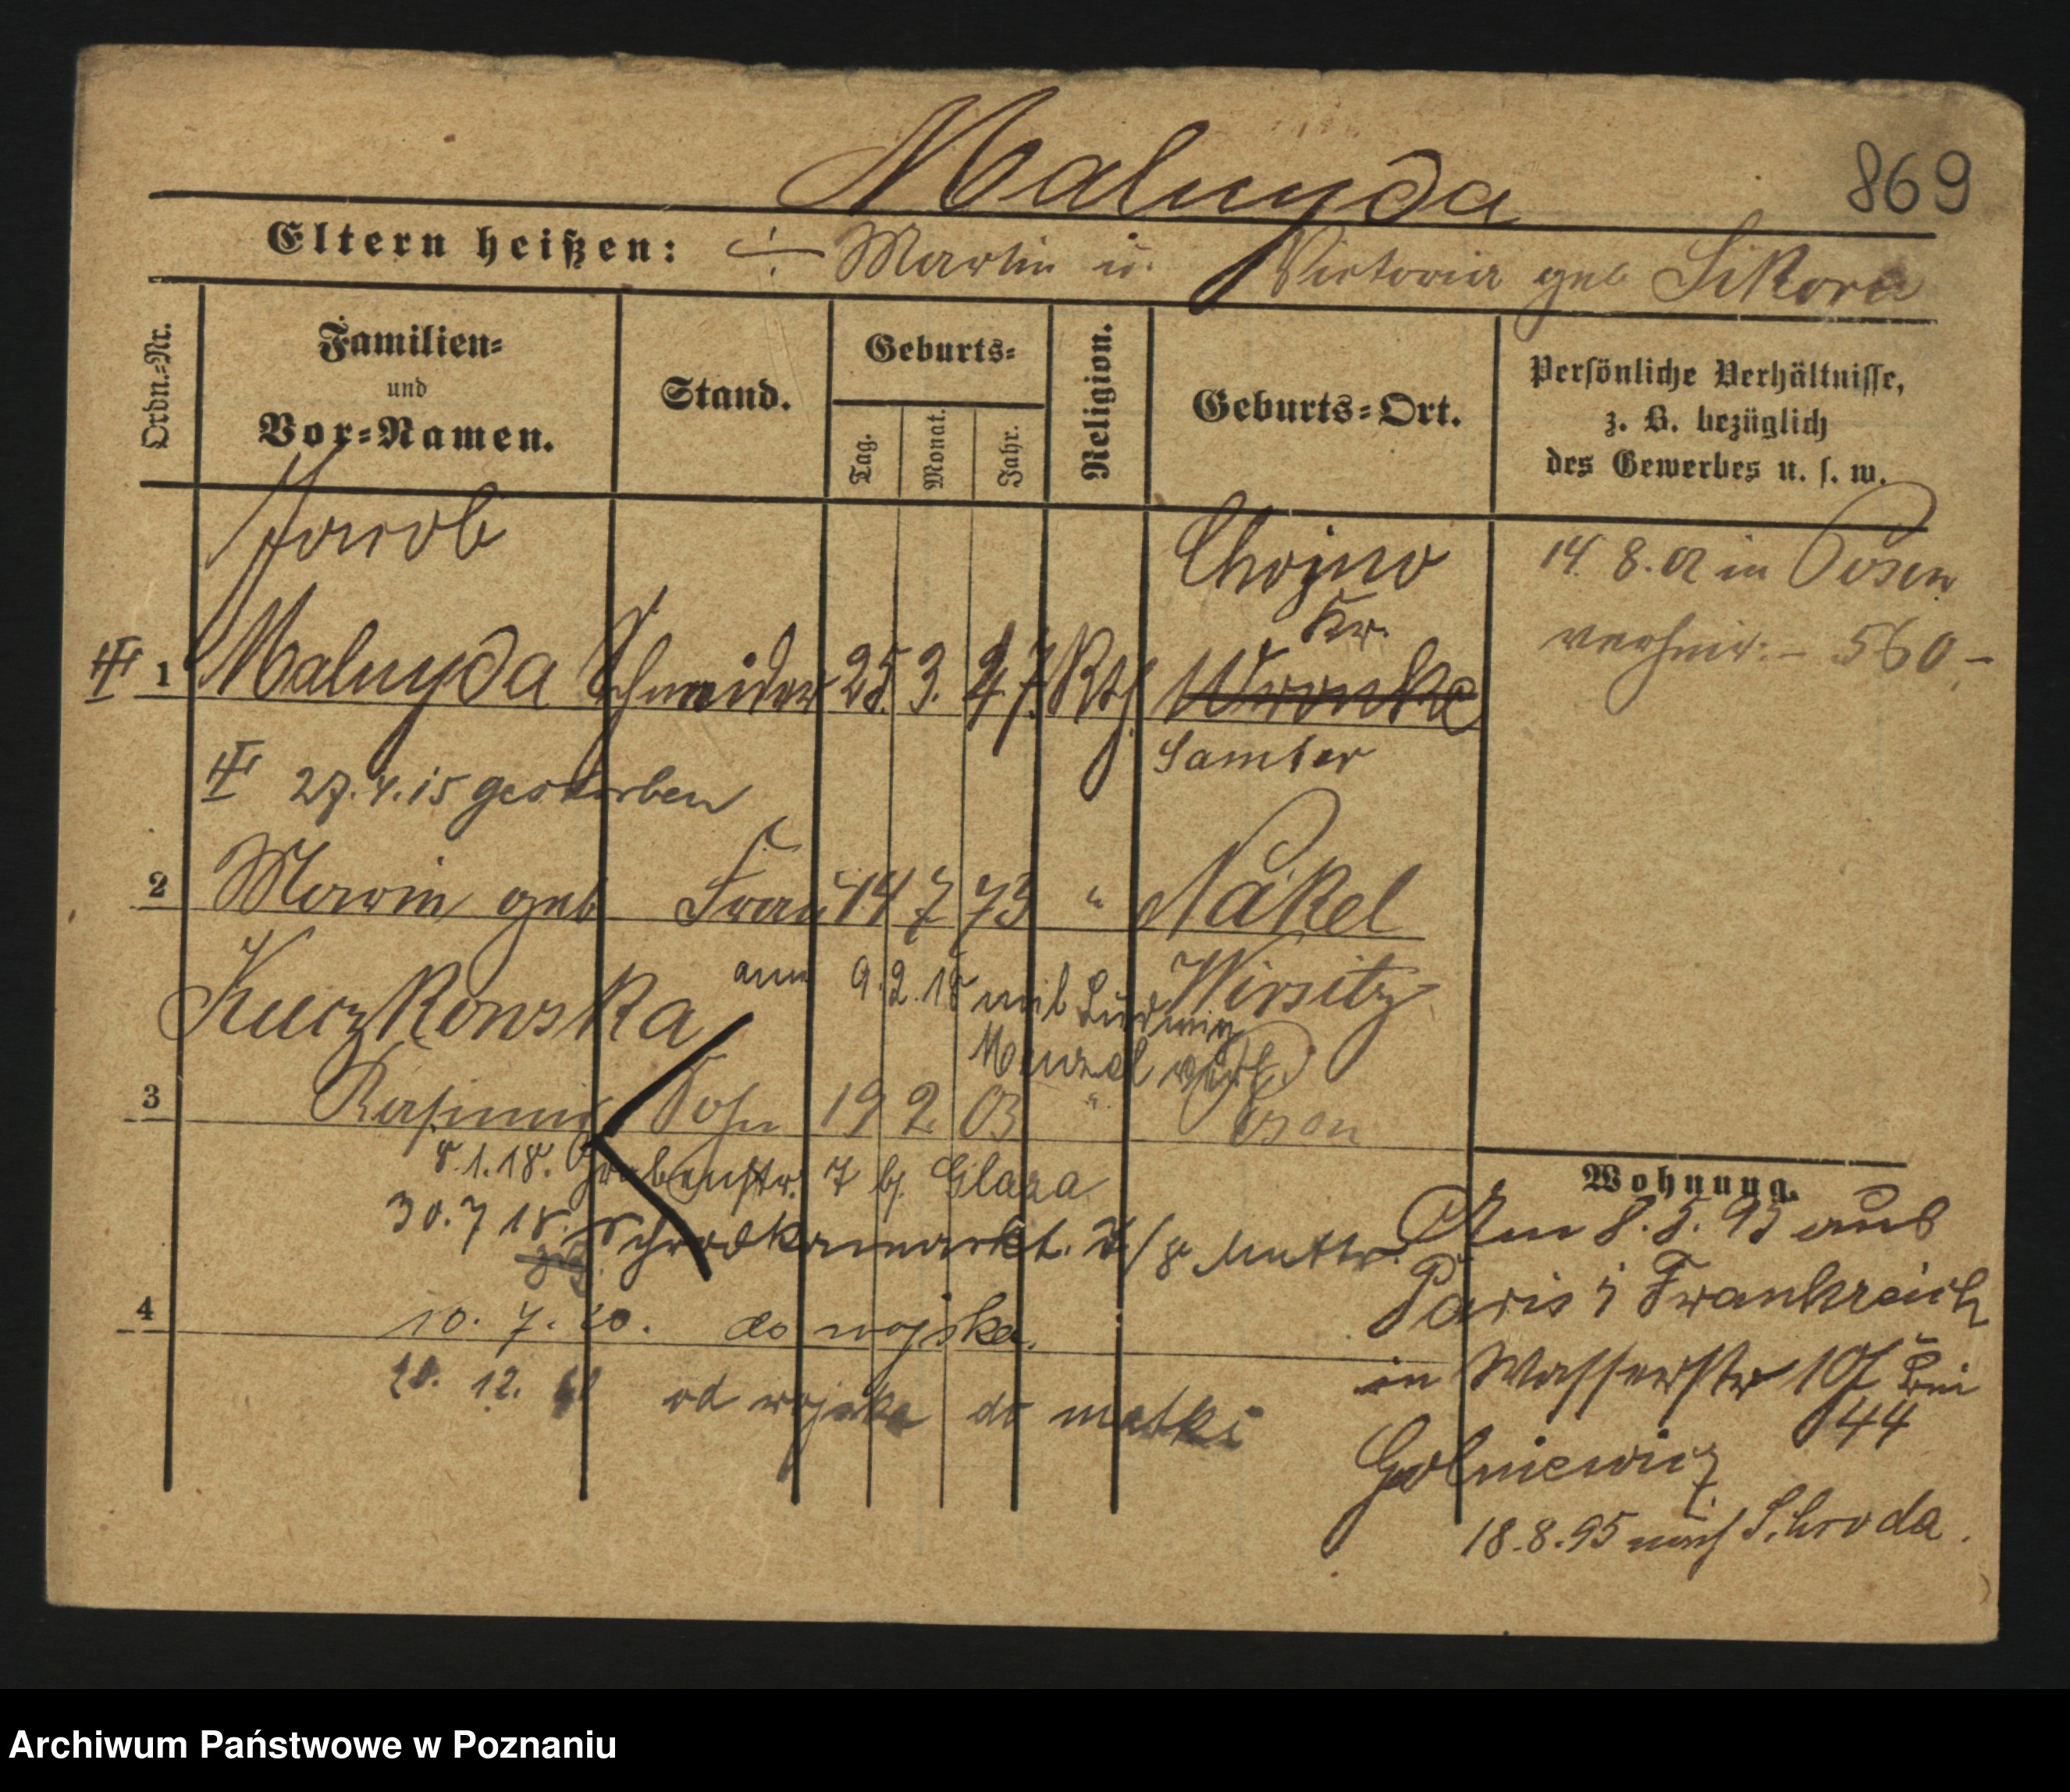 Maluyda
869
Eltern heißen: Martin u. Victoria geb Sikora
Ordn.-Nr.
Familien-
und
Vor-Namen.
Stand.
Geburts-
Tag.
Monat.
Jahr.
Religion.
Geburts-Ort.
Persönliche Verhältnisse,
z. B. bezüglich
des Gewerbes u. s. w.
Jacob
Chojno
14. 8. 02 in Posen
Kr.
verheir. – 560 –
1 Maluyda Schneider 25. 3. 47. Kth Wronke
Samter
27. 4. 15 gestorben
2 Marie geb Frau 14 7 73 " Nakel
Kuczkowska
Wirsitz
am 9. 2. 18 mit Ludwig
Menzel verh.
3 Kasimir Sohn 19 2 03 " Posen
8. 1. 18. Grabenstr. 7 b. Glaza
30. 7 18. Schrodkamarkt. 7/8 Mutter
4
10. 7. 20. do wojska.
20. 12. od wojska do matki
Wohnung.
Am 8. 5. 95 aus
Paris i Frankreich
in Wasserstr bei
44
Golniewicz
18. 8. 95 nach Schroda.
Archiwum Państwowe w Poznaniu